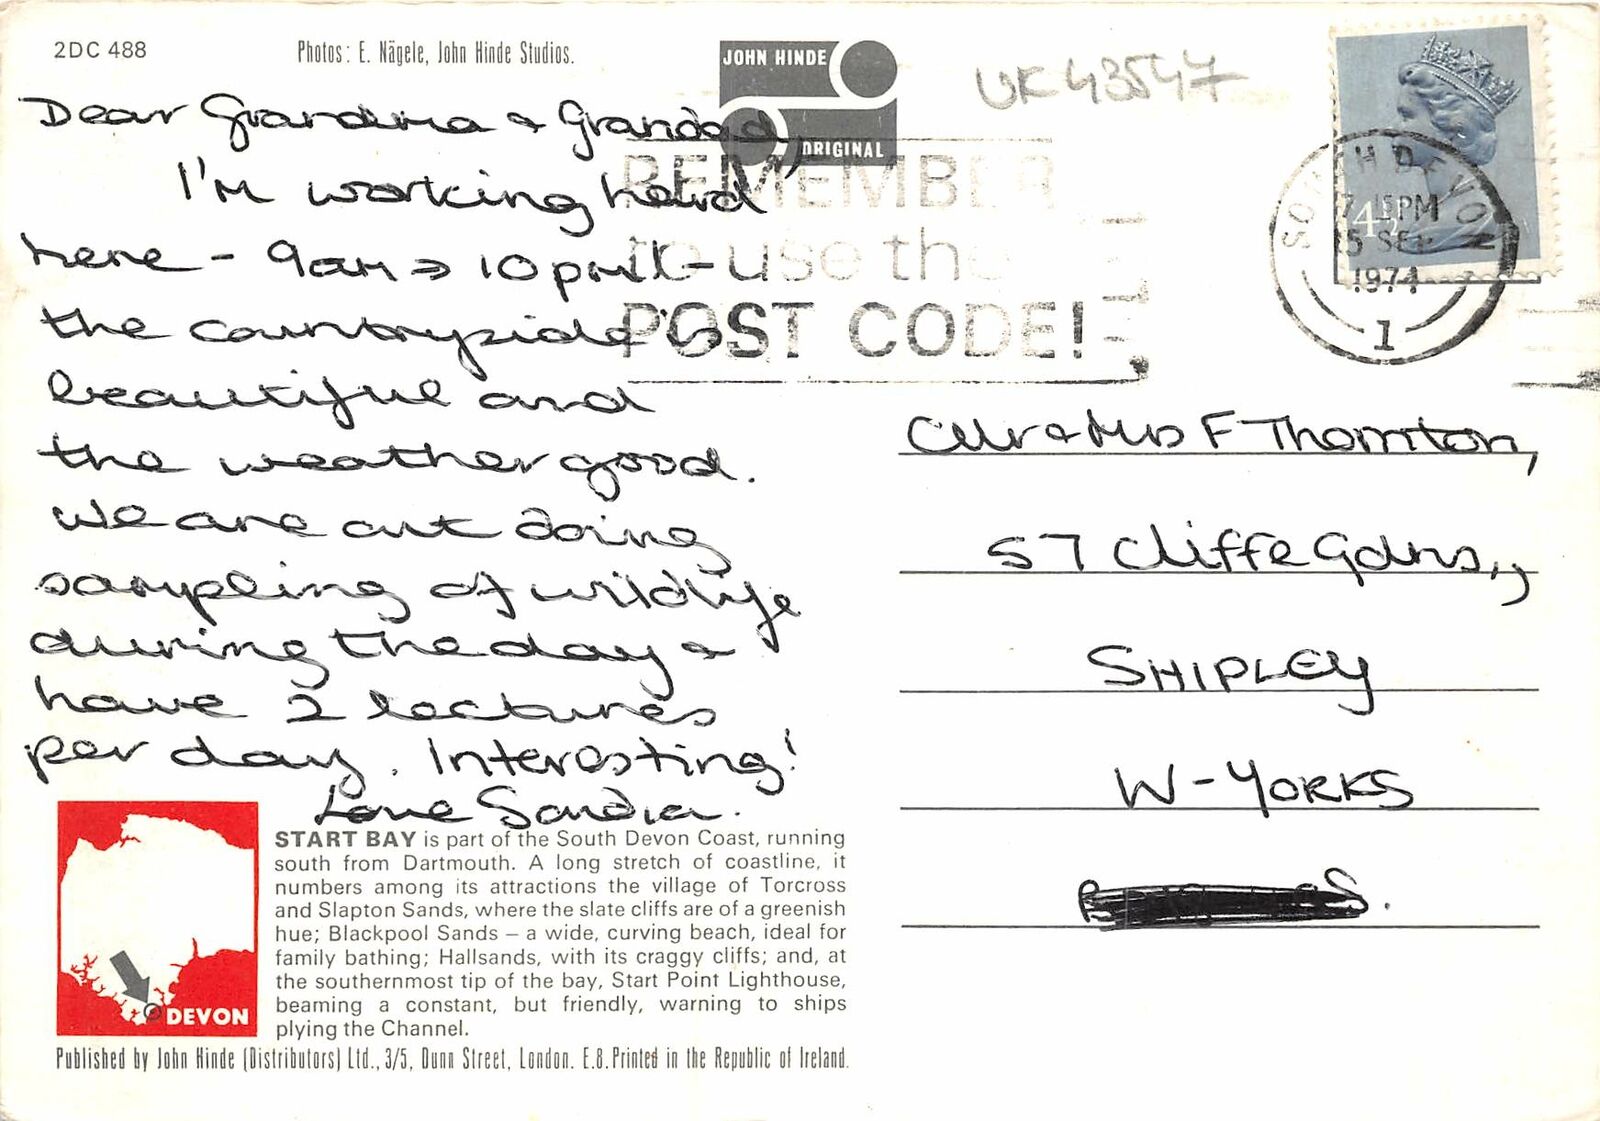 2DC 488
Photos: E. Nägele, John Hinde Studios.
JOHN HINDE
ORIGINAL
UK43547
Dear Grandma & Grandad,
I'm working hard
here - 9am → 10pm -
the countryside's
beautiful and
the weather good.
We are out doing
sampling of wildlife
during the day &
have 2 lectures
per day. Interesting!
Love Sandra.
REMEMBER
to use the
POST CODE!
SOUTH DEVON
7 15PM
5 SEP
1974
1
4½
Mr & Mrs F Thornton,
57 Cliffe Gdns,,
SHIPLEY
W-YORKS
START BAY is part of the South Devon Coast, running
south from Dartmouth. A long stretch of coastline, it
numbers among its attractions the village of Torcross
and Slapton Sands, where the slate cliffs are of a greenish
hue; Blackpool Sands – a wide, curving beach, ideal for
family bathing; Hallsands, with its craggy cliffs; and, at
the southernmost tip of the bay, Start Point Lighthouse,
beaming a constant, but friendly, warning to ships
plying the Channel.
DEVON
Published by John Hinde (Distributors) Ltd., 3/5, Dunn Street, London. E.8. Printed in the Republic of Ireland.